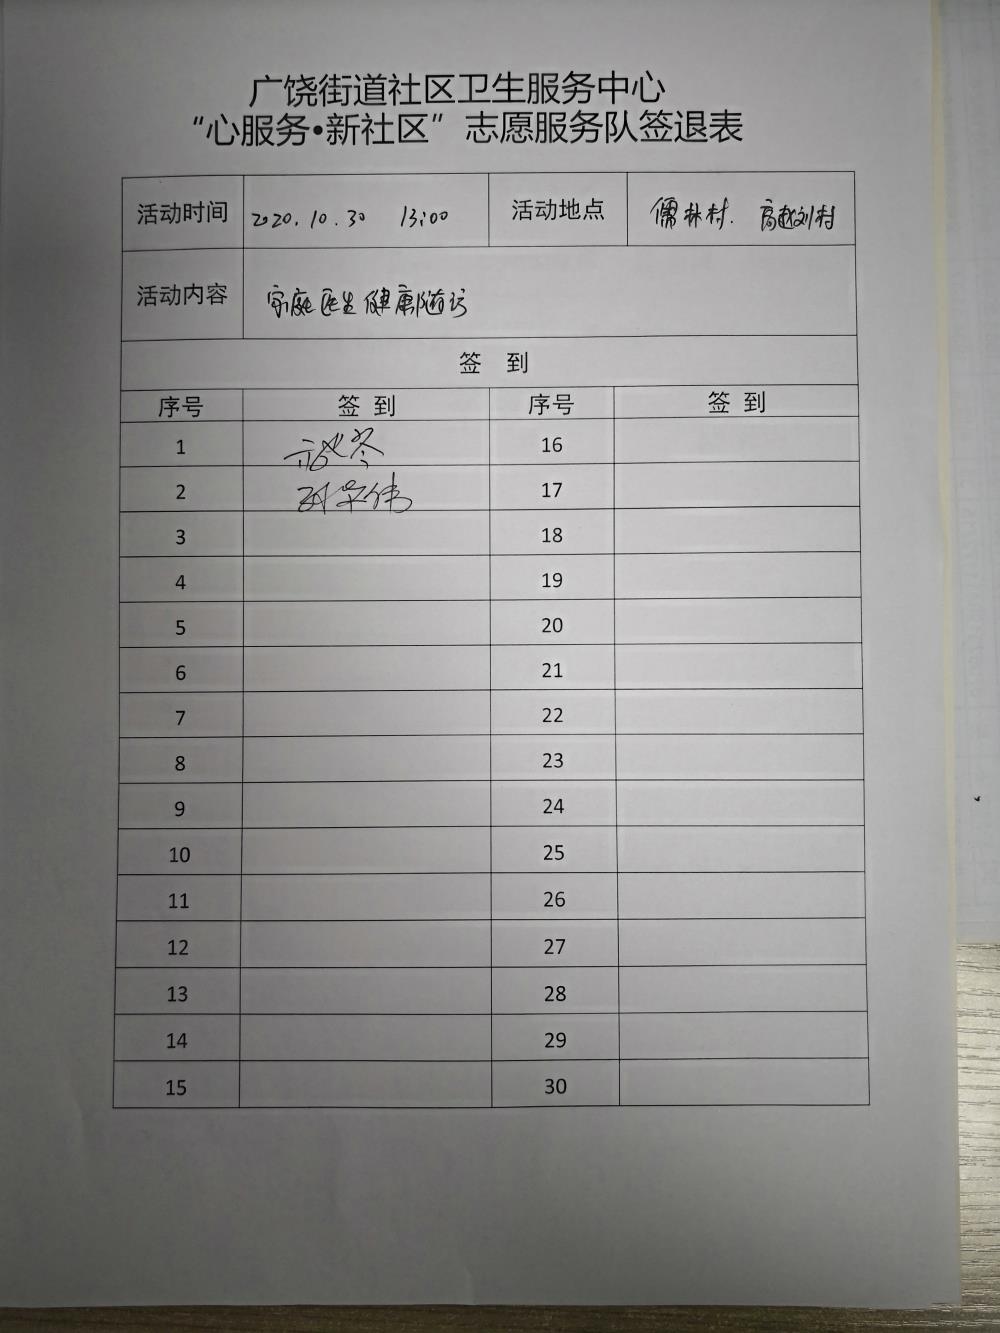 广饶街道社区卫生服务中心
“心服务•新社区”志愿服务队签退表
活动时间 2020.10.30 13:00 活动地点 儒林村. 高赵刘村
活动内容 家庭医生健康随访
签 到
序号 签 到 序号 签 到
1 16
2 17
3 18
4 19
5 20
6 21
7 22
8 23
9 24
10 25
11 26
12 27
13 28
14 29
15 30